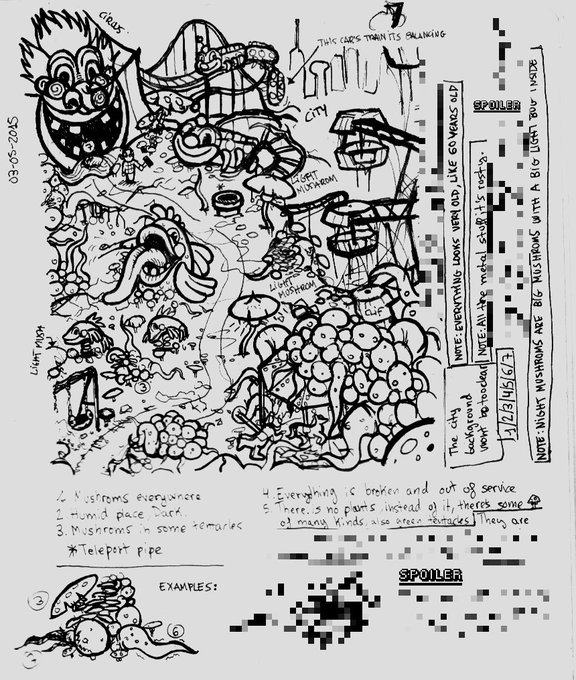 7
CIRCUS
THIS CAR'S TRAIN ITS BALANCING
CITY
03-05-2015
SPOILER
LIGHT MUSHROM
*
LIGHT MUSHROM
LIGHT MUSH
3
NOTE: EVERYTHING LOOKS VERY OLD, LIKE 60 YEARS OLD
NOTE: All the metal stuff it's rosty.
NOTE: NIGHT MUSHROMS ARE BIG MUSHROMS WITH A BIG LIGHT BUV INSIDE
The city
background
wont be too clear
1/2/3/4/5/6/7
1. Mushroms everywhere
2. Humid place, Dark.
3. Mushroms in some tentacles
*Teleport pipe
4. Everything is broken and out of service
5. There is no plants instead of it, there's some
of many kinds, also green tentacles. They are
EXAMPLES:
SPOILER
6